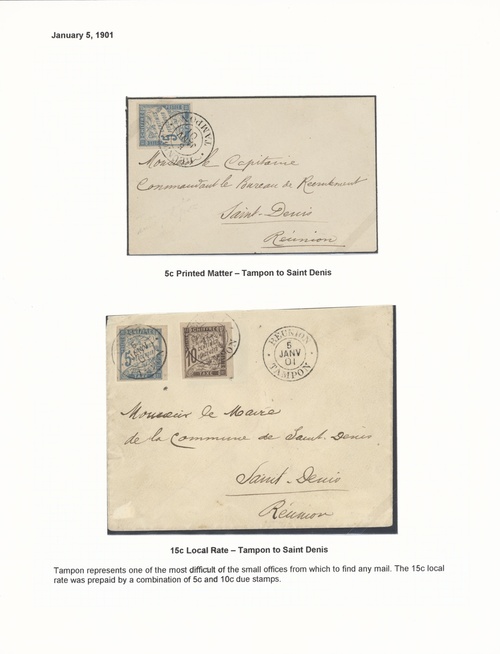 January 5, 1901
5
TAMPON
Monsieur le Capitaine
Commandant le Bureau de Recrutement
Saint-Denis
Réunion
5c Printed Matter – Tampon to Saint Denis
5
CHIFFRE
10
TAXE
RÉUNION
5
JANV
01
TAMPON
Monsieur le Maire
de la Commune de Saint-Denis
Saint-Denis
Réunion
15c Local Rate – Tampon to Saint Denis
Tampon represents one of the most difficult of the small offices from which to find any mail. The 15c local
rate was prepaid by a combination of 5c and 10c due stamps.